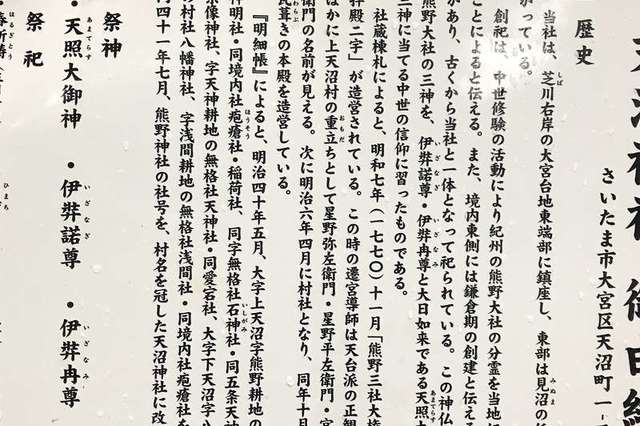 天沼神社 御由緒
さいたま市大宮区天沼町一-
歴史
当社は、芝川右岸の大宮台地東端部に鎮座し、東部は見沼の
がっている。
創祀は、中世修験の活動により紀州の熊野大社の分霊を当地に
ことによると伝える。また、境内東側には鎌倉期の創建と伝える
があり、古くから当社と一体となって祀られている。この神仏
熊野大社の三神を、伊弊諾尊・伊弊冉尊と大日如来である天照
三神に当てる中世の信仰に習ったものである。
社蔵棟札によると、明和七年(一七七〇)十一月「熊野三社大権
拝殿二字」が造営されている。この時の遷宮導師は天台派の正観
ほかに上天沼村の重立ちとして星野弥左衛門・星野平左衛門・宮
衛門の名前が見える。次に明治六年四月に村社となり、同年十月
葺きの本殿を造営している。
『明細帳』によると、明治四十年五月、大字上天沼字熊野耕地の
神明社・同境内社疱瘡社・稲荷社、同字無格社石神社・同五条天神
宗像神社、字天神耕地の無格社天神社・同愛宕社、大字下天沼字八
の村社八幡神社、字浅間耕地の無格社浅間社・同境内社疱瘡社を
四十一年七月、熊野神社の社号を、村名を冠した天沼神社に改
祭神
・天照大御神 ・伊弊諾尊 ・伊弊冉尊
祭祀